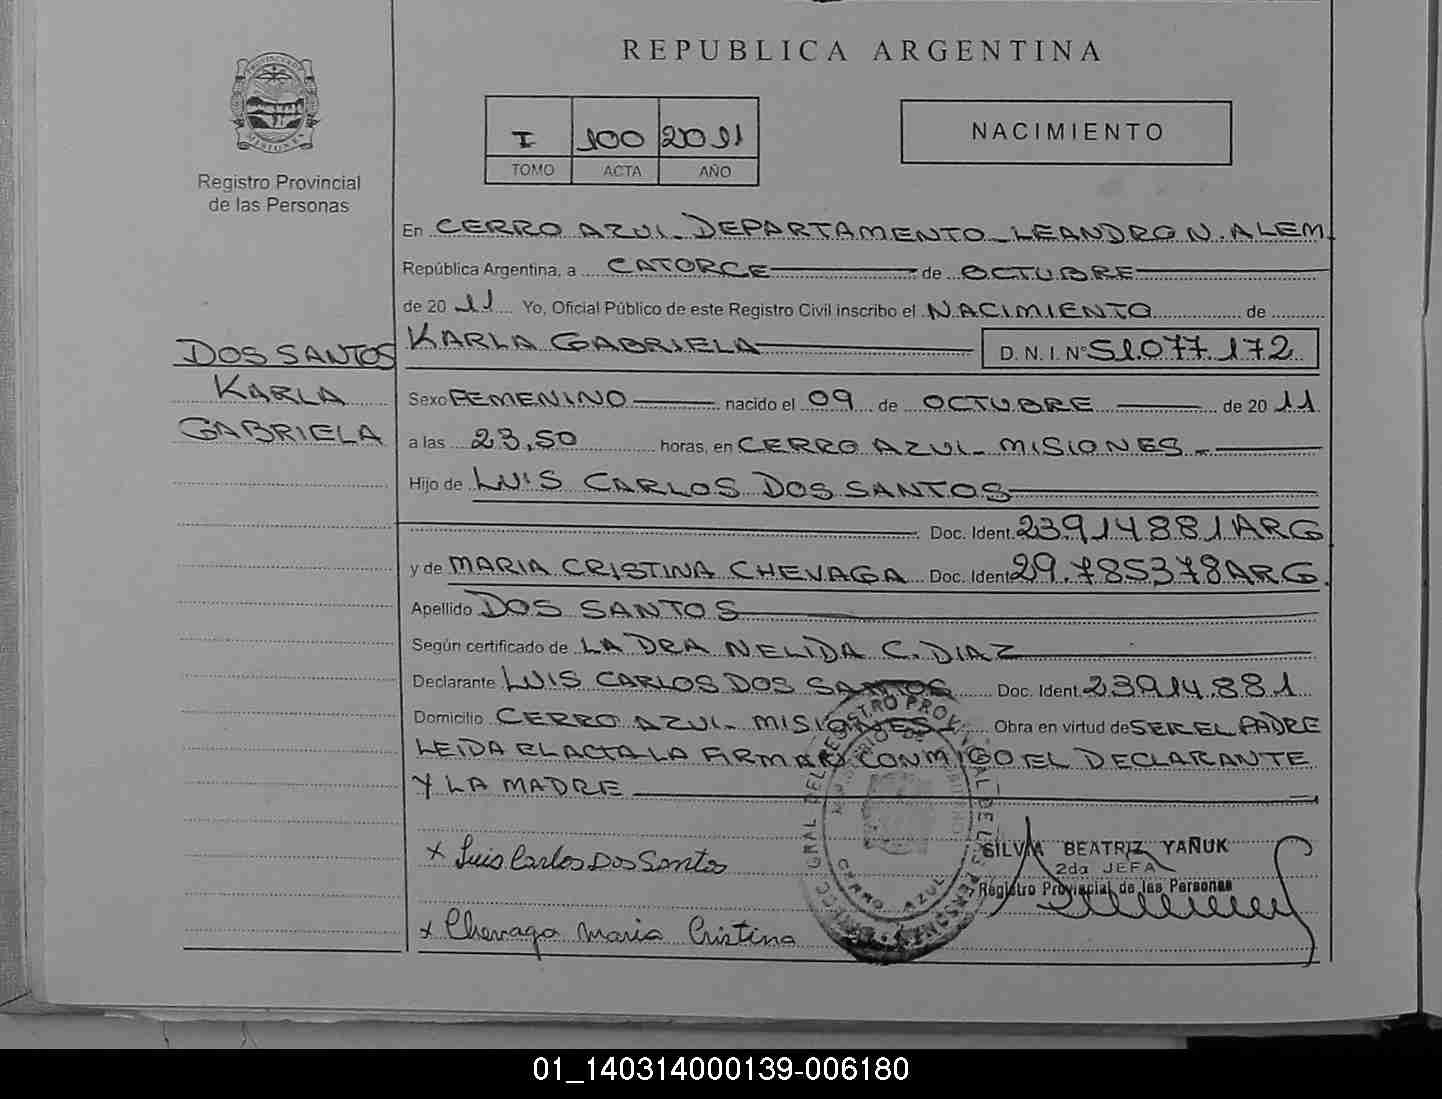 REPUBLICA ARGENTINA
I 100 2011
TOMO ACTA AÑO
NACIMIENTO
Registro Provincial
de las Personas
DOS SANTOS
KARLA
GABRIELA
En CERRO AZUL - DEPARTAMENTO - LEANDRO N. ALEM
República Argentina, a CATORCE de OCTUBRE
de 2011 Yo, Oficial Público de este Registro Civil inscribo el NACIMIENTO de
KARLA GABRIELA D. N. I. Nº 51.077.172
Sexo FEMENINO nacido el 09 de OCTUBRE de 2011
a las 23,50 horas, en CERRO AZUL - MISIONES -
Hijo de LUIS CARLOS DOS SANTOS
Doc. Ident. 23914881 ARG
y de MARIA CRISTINA CHEVAGA Doc. Ident 29.785378 ARG.
Apellido DOS SANTOS
Según certificado de LA DRA NELIDA C. DIAZ
Declarante LUIS CARLOS DOS SANTOS Doc. Ident. 23914.881
Domicilio CERRO AZUL - MISIONES Obra en virtud de SER EL PADRE
LEIDA EL ACTA LA FIRMAN CONMIGO EL DECLARANTE
Y LA MADRE
x Luis Carlos Dos Santos
x Chevaga Maria Cristina
SILVIA BEATRIZ YAÑUK
2da JEFA
Registro Provincial de las Personas
GRAL DEL REGISTRO PROVINCIAL DE LAS PERSONAS
CERRO AZUL
01_140314000139-006180